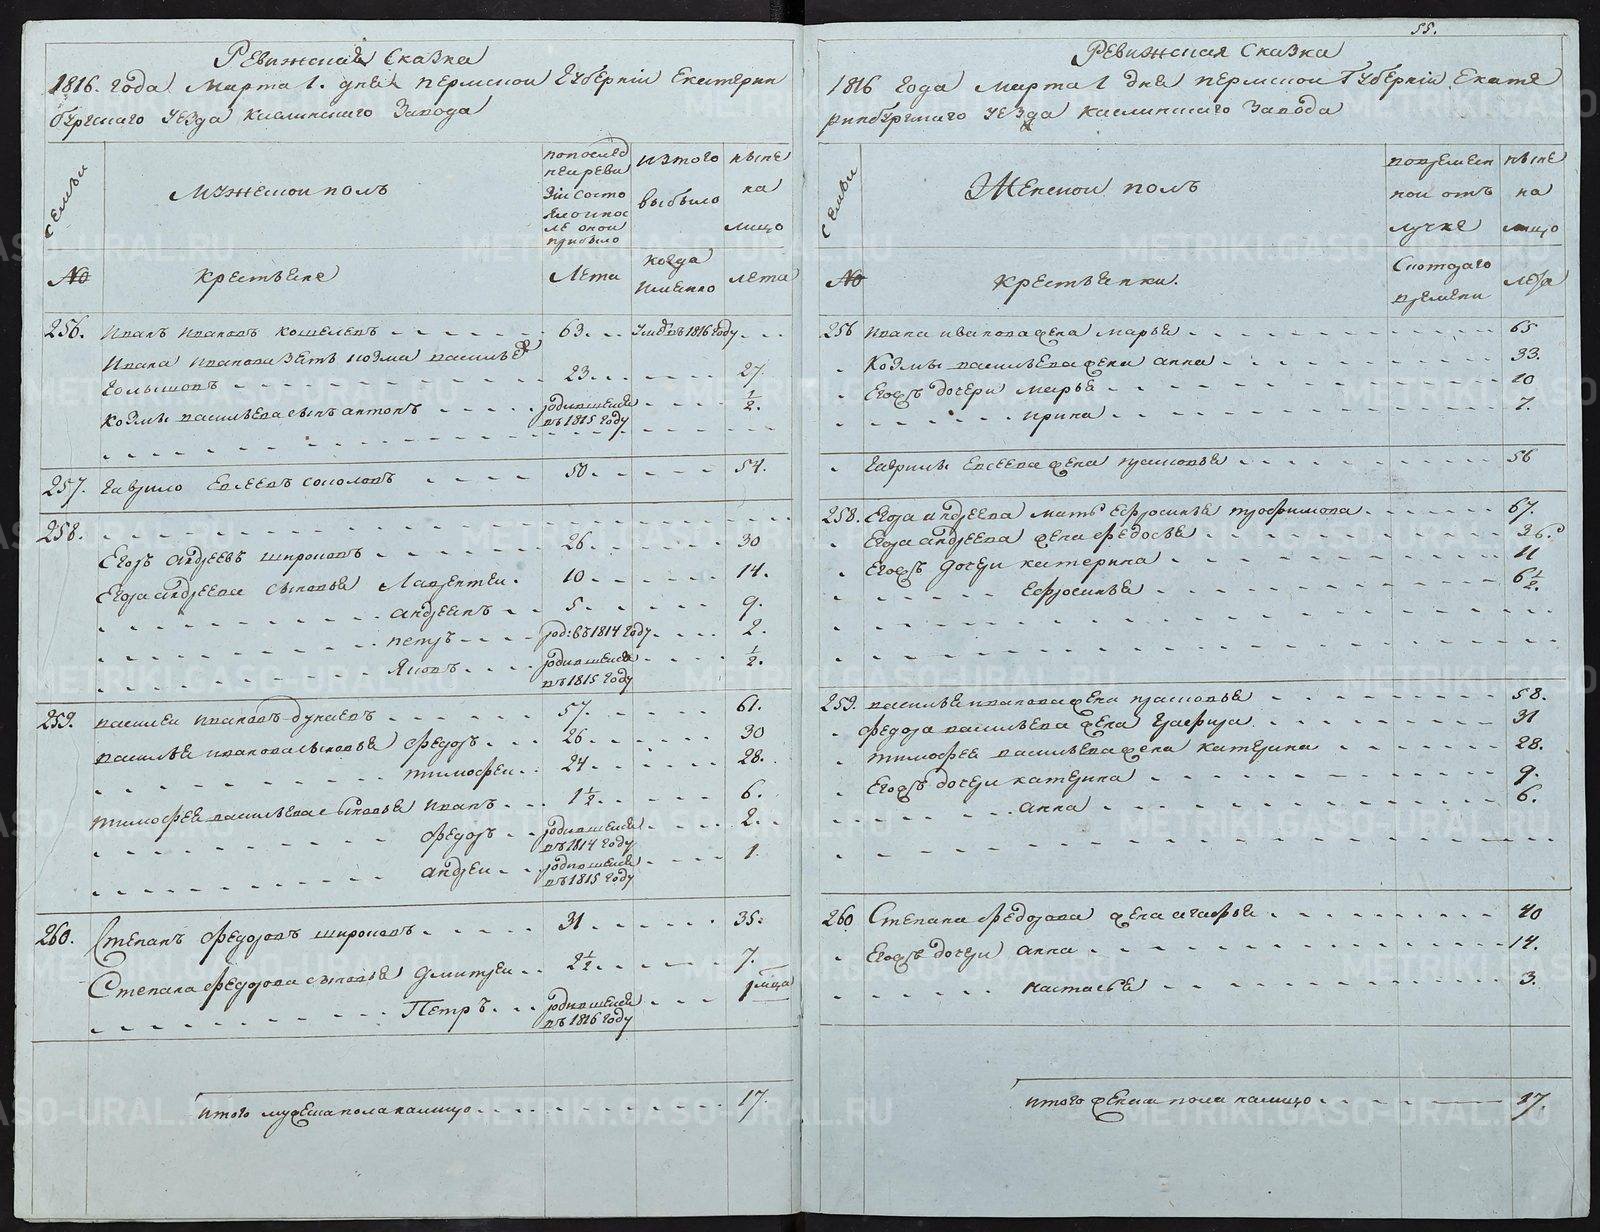 Ревижская Сказка
1816. года Марта 1. дня Пермской Губернїи Екатерин
бургскаго уезда каслинскаго Завода
семьи
мужескои полъ
попослед
ней реви
зїи состо
яло и пос
ле оной
прибыло
изтого
выбыло
ныне
на
лицо
№
крестьяне
Лета
когда
имянно
лета
256. иванъ ивановъ кошелевъ 63. умре въ 1816 году
ивана иванова зять козма василье
голышовъ 23. 27.
козмы васильева сынъ антонъ родившеися 1/2.
въ 1815 году
257. гаврило евсеевъ соколовъ 50 54.
258.
Егоръ андреевъ широковъ 26 30
Егора андреева сыновья Лаврентеи. 10 14.
андреянъ 5 9.
петръ род: въ 1814 году 2.
яковъ родившеися 1/2.
въ 1815 году
259. василеи ивановъ дунаевъ 57. 61.
василья иванова сыновья федоръ 26 30
тимофеи 24 28.
тимофея васильева сыновья иванъ 1 1/2. 6.
федоръ родившеися 2.
въ 1814 году
андреи родившеися 1.
въ 1815 году
260. Степанъ федоровъ широковъ 31 35.
Степана федорова сыновья дмитреи 2 1/2. 7.
Петръ родившеися 1 мца
въ 1816 году
итого мужеска пола налицо 17.
55.
Ревижская Сказка
1816 года марта 1 дня пермской Губернїи Екате
ринбургскаго уезда каслинскаго Завода
семьи
Женскои полъ
во времен
ной отъ
лучке
ныне
на
лицо
№
крестьянки.
Скотораго
времени
лета
256 ивана иванова жена марья 65
козмы васильева жена анна 33.
Егожъ дочери марья 10
ирина 7.
гаврилы евсеева жена прасковья 56
258. Егора андреева мать ефросинья трофимова 67.
Егора андреева жена федосья 36.
Егожъ дочери катерина 11
Ефросинья 6 1/2.
259. василья иванова жена прасковья 58.
федора васильева жена 31
тимофея васильева жена катерина 28.
Егожъ дочери катерина 9.
анна 6.
260 Степана федорова жена агафья 40
Егожъ дочери анна 14.
настасья 3.
итого женска пола налицо 17.
METRIKI.GASO-URAL.RU